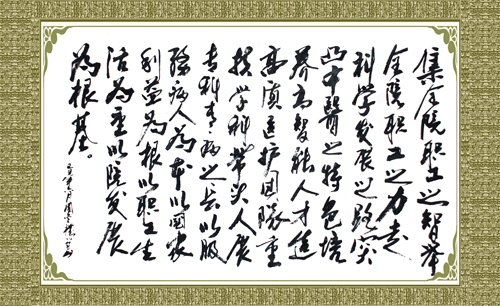 集全院职工之智举
全院职工之力走
科学发展之路突
凸中醫之特色培
养高智能人才造
高质医护团队重
拔学科带头人展
专科专病之长以服
病人为本以國家
利益为根以职工生
活为重以院发展
为根基。